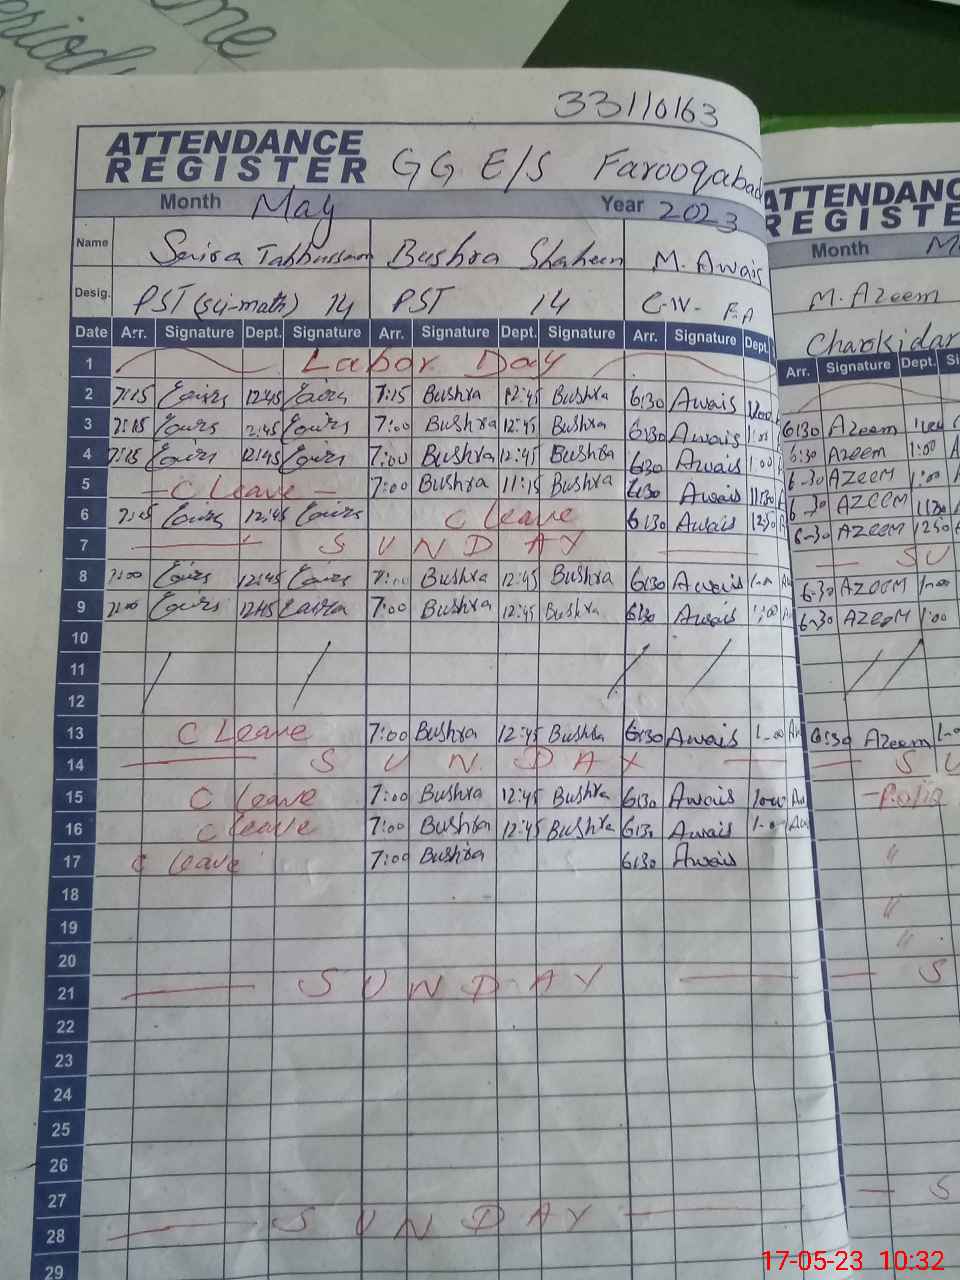 33110163
ATTENDANCE REGISTER GG E/S Farooqabad
Month May Year 2023
Name Bushra Shaheen M. Awais
Desig. PST (Sci-math) 14 PST 14 C-IV- F.A
Date Arr. Signature Dept. Signature Arr. Signature Dept. Signature Arr. Signature Dept.
1 Labor Day
2 7:15 12:45 7:15 Bushra 12:45 Bushra 6:30 Awais
3 7:15 2:45 7:00 Bushra 12:45 Bushra 6:30 Awais 1:00
4 7:15 12:45 7:00 Bushra 12:45 Bushra 6:30 Awais 1:00
5 C Leave 7:00 Bushra 11:15 Bushra 6:30 Awais 11:30
6 7:15 12:45 C leave 6:30 Awais 12:30
7 SUNDAY
8 7:00 12:45 7:00 Bushra 12:45 Bushra 6:30 Awais 1:00
9 7:00 12:45 7:00 Bushra 12:45 Bushra 6:30 Awais 1:00
10
11
12
13 C Leave 7:00 Bushra 12:45 Bushra 6:30 Awais 1:00
14 SUNDAY
15 C leave 7:00 Bushra 12:45 Bushra 6:30 Awais
16 C leave 7:00 Bushra 12:45 Bushra 6:30 Awais 1:00
17 C leave 7:00 Bushra 6:30 Awais
18
19
20
21 SUNDAY
22
23
24
25
26
27
28 SUNDAY
29
ATTENDANC
REGISTE
Month M
M. Azeem
Chaokidar
Arr. Signature Dept. Si
6:30 Azeem
6:30 Azeem 1:00
6-30 AZEEM 1:00
6-30 AZEEM 11:30
6-30 AZEEM 1230
SU
6-30 AZEEM 1:00
6-30 AZEEM 1:00
6:30 Azeem 1:00
SU
Polio
"
"
"
S
S
17-05-23 10:32